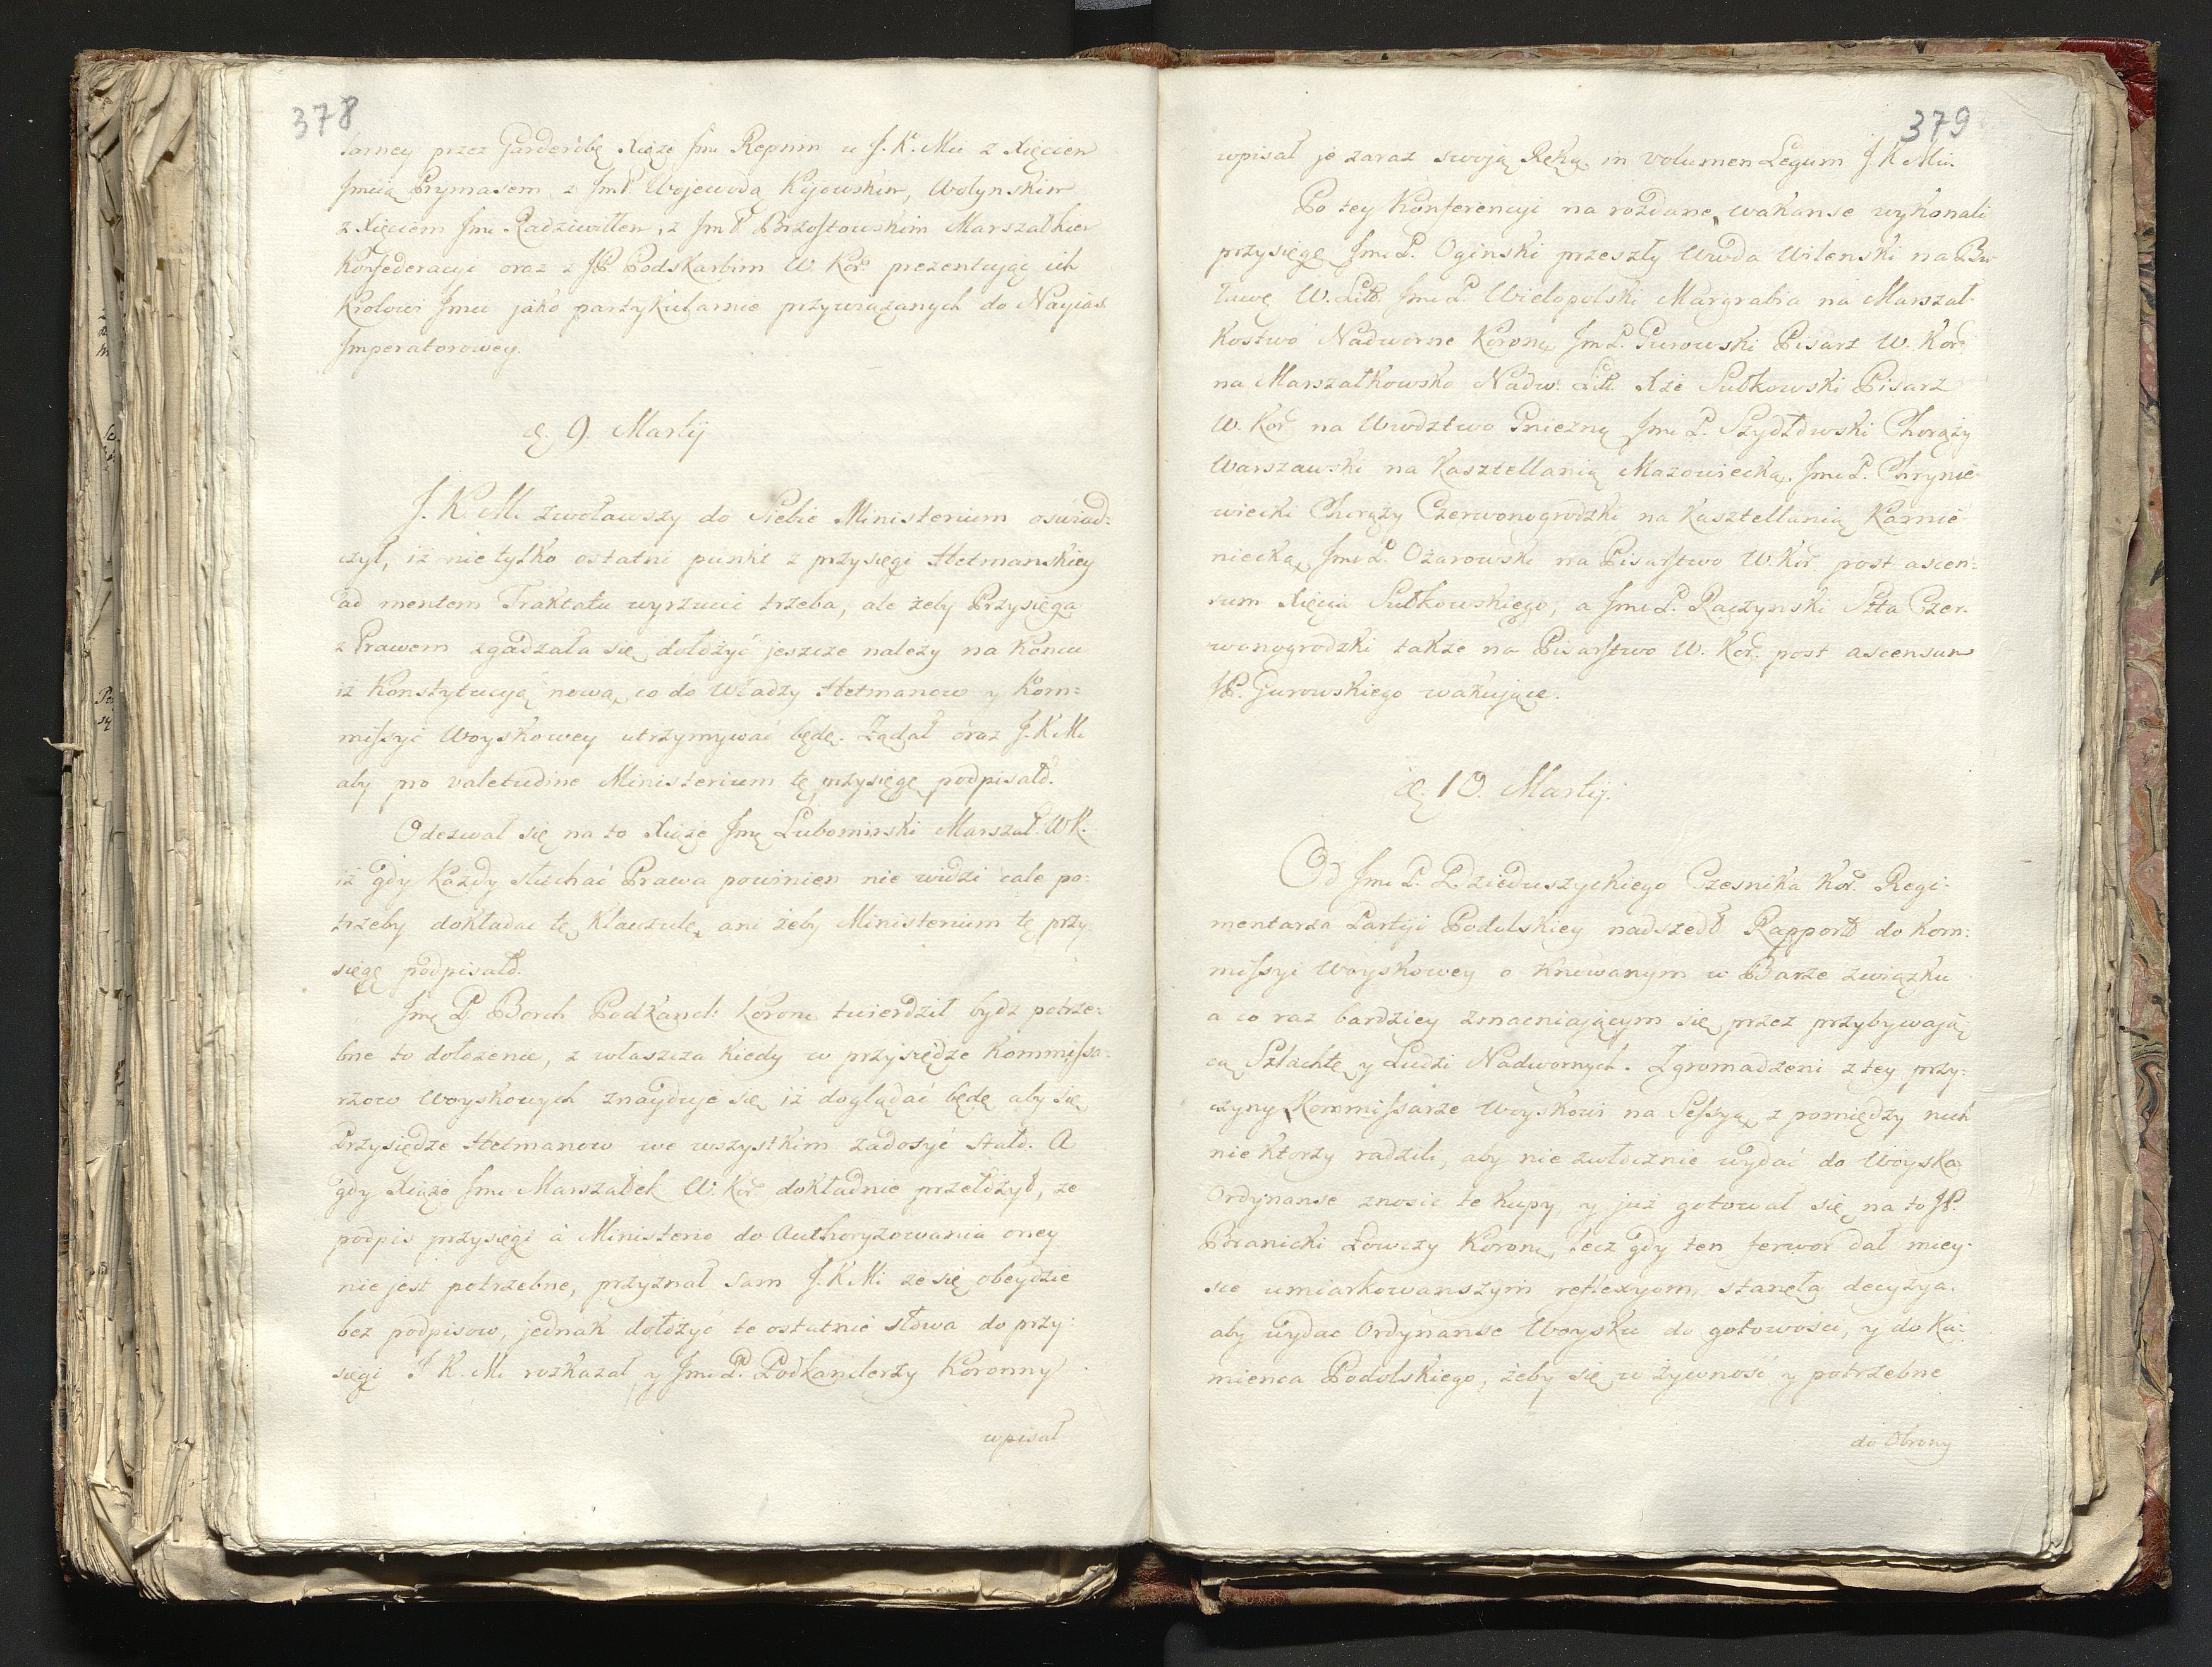 378
larney przez Garderóbę Xiąże Jmć Repnin u J. K. Mci z Xięciem
Jmcią Prymasem, z JmP. Wojewodą Kijowskim, Wołynskim
z Xięciem Jmc Radziwiłłem, z JmP. Brzostowskim Marszałkiem
Konfederacyi oraz z JP. Podskarbim W. Kor. prezentując ich
Krolowi Jmci jako partykularnie przywiązanych do Nayias
Imperatorowey.
d. 9. Martij
J. K. M. zwoławszy do Siebie Ministerium oswiad-
czył, iż nie tylko ostatni punkt z przysięgi Hetmanskiey
ad mentem Traktatu wyrzucić trzeba, ale żeby Przysięga
z Prawem zgadzała się dołożyć jeszcze należy na Koncu
iż Konstytucyją nową co do Władzy Hetmanow y Kom-
missyi Woyskowey utrzymywać będę. Żądał oraz J. K. M.
aby pro valetudine Ministerium tę przysięgę podpisało.
Odezwał się na to Xiąże Jmć Lubomirski Marszał. WK.
iż gdy Każdy słuchać Prawa powinien nie widzi cale po-
trzeby dokładac tę Klauzulę, ani żeby Ministerium tę przy
sięgę podpisało.
Jmć P. Borch Podkancl: Koronn twierdził bydz potrze-
bne to dołożenie, z właszcza kiedy w przysiędze Kommissa-
rzow Woyskowych znayduje się iż doglądać będę aby się
Przysiędze Hetmanow we wszystkim zadosyć stało. A
gdy Xiąże Jmc Marszałek W. Kor. dokładnie przełożył, ze
podpis przysięgi à Ministerio do Authoryzowania oney
nie jest potrzebne, przyznał Sam J. K. M. ze się obeydzie
bez podpisow, jednak dołożyć te ostatnie słowa do przy-
sięgi J. K. M. rozkazał, y Jmć P. Podkanclerzy Koronny
wpisał
379
wpisał je zaraz swoją Ręką in volumen Legum J. K. Mci.
Po tey Konferencyi na rozdane wakanse wykonali
przysięgę Jmć P. Oginski przeszły Wwda Wilenski na Bu-
ławę W. Litt. Jmć P. Wielopolski Margrabia na Marszał-
kostwo Nadworne Koronn Jm P. Gurowski Pisarz W. Kor.
na Marszałkowsko Nadw. Litt. Xże Sułkowski Pisarz
W. Kor. na Wwdztwo Gniezn Jmć P. Szydłowski Chorąży
Warszawski na Kasztellanią Mazowiecką. Jmć P. Chrynie-
wiecki Chorąży Czerwonogrodzki na Kasztellanią Kamie
niecką, Jmć P. Ożarowski na Pisarstwo W. Kor. post ascen-
sum Xięcia Sułkowskiego, a Jmć P. Raczynski Stta Czer-
wonogrodzki także na Pisarstwo W. Kor. post ascensum
JP. Gurowskiego wakujące.
d. 10. Martij.
Od Jmć P. Dzieduszyckiego Czesnika Kor. Regi-
mentarza Partyi Podolskiey nadszedł Rapport do Kom-
missyi Woyskowey o Knowanym w Barze związku
a co raz bardziey zmacniającym się przez przybywają
cą Szlachtę y Ludzi Nadwornych. Zgromadzeni z tey przy-
czyny Kommissarze Woyskowi na Sessyą z pomiędzy nich
nie ktorzy radzili, aby nie zwłocznie wydać do Woyska
Ordynanse znosic te kupy, y już gotował się na to JP.
Branicki Łowczy Koronn, lecz gdy ten ferwor dał miey-
sce umiarkowanszym reflexyom, stanęła decyzya.
aby wydac Ordynanse Woysku do gotowości, y do Ka-
mienca Podolskiego, żeby się w żywność y potrzebne
do Obrony